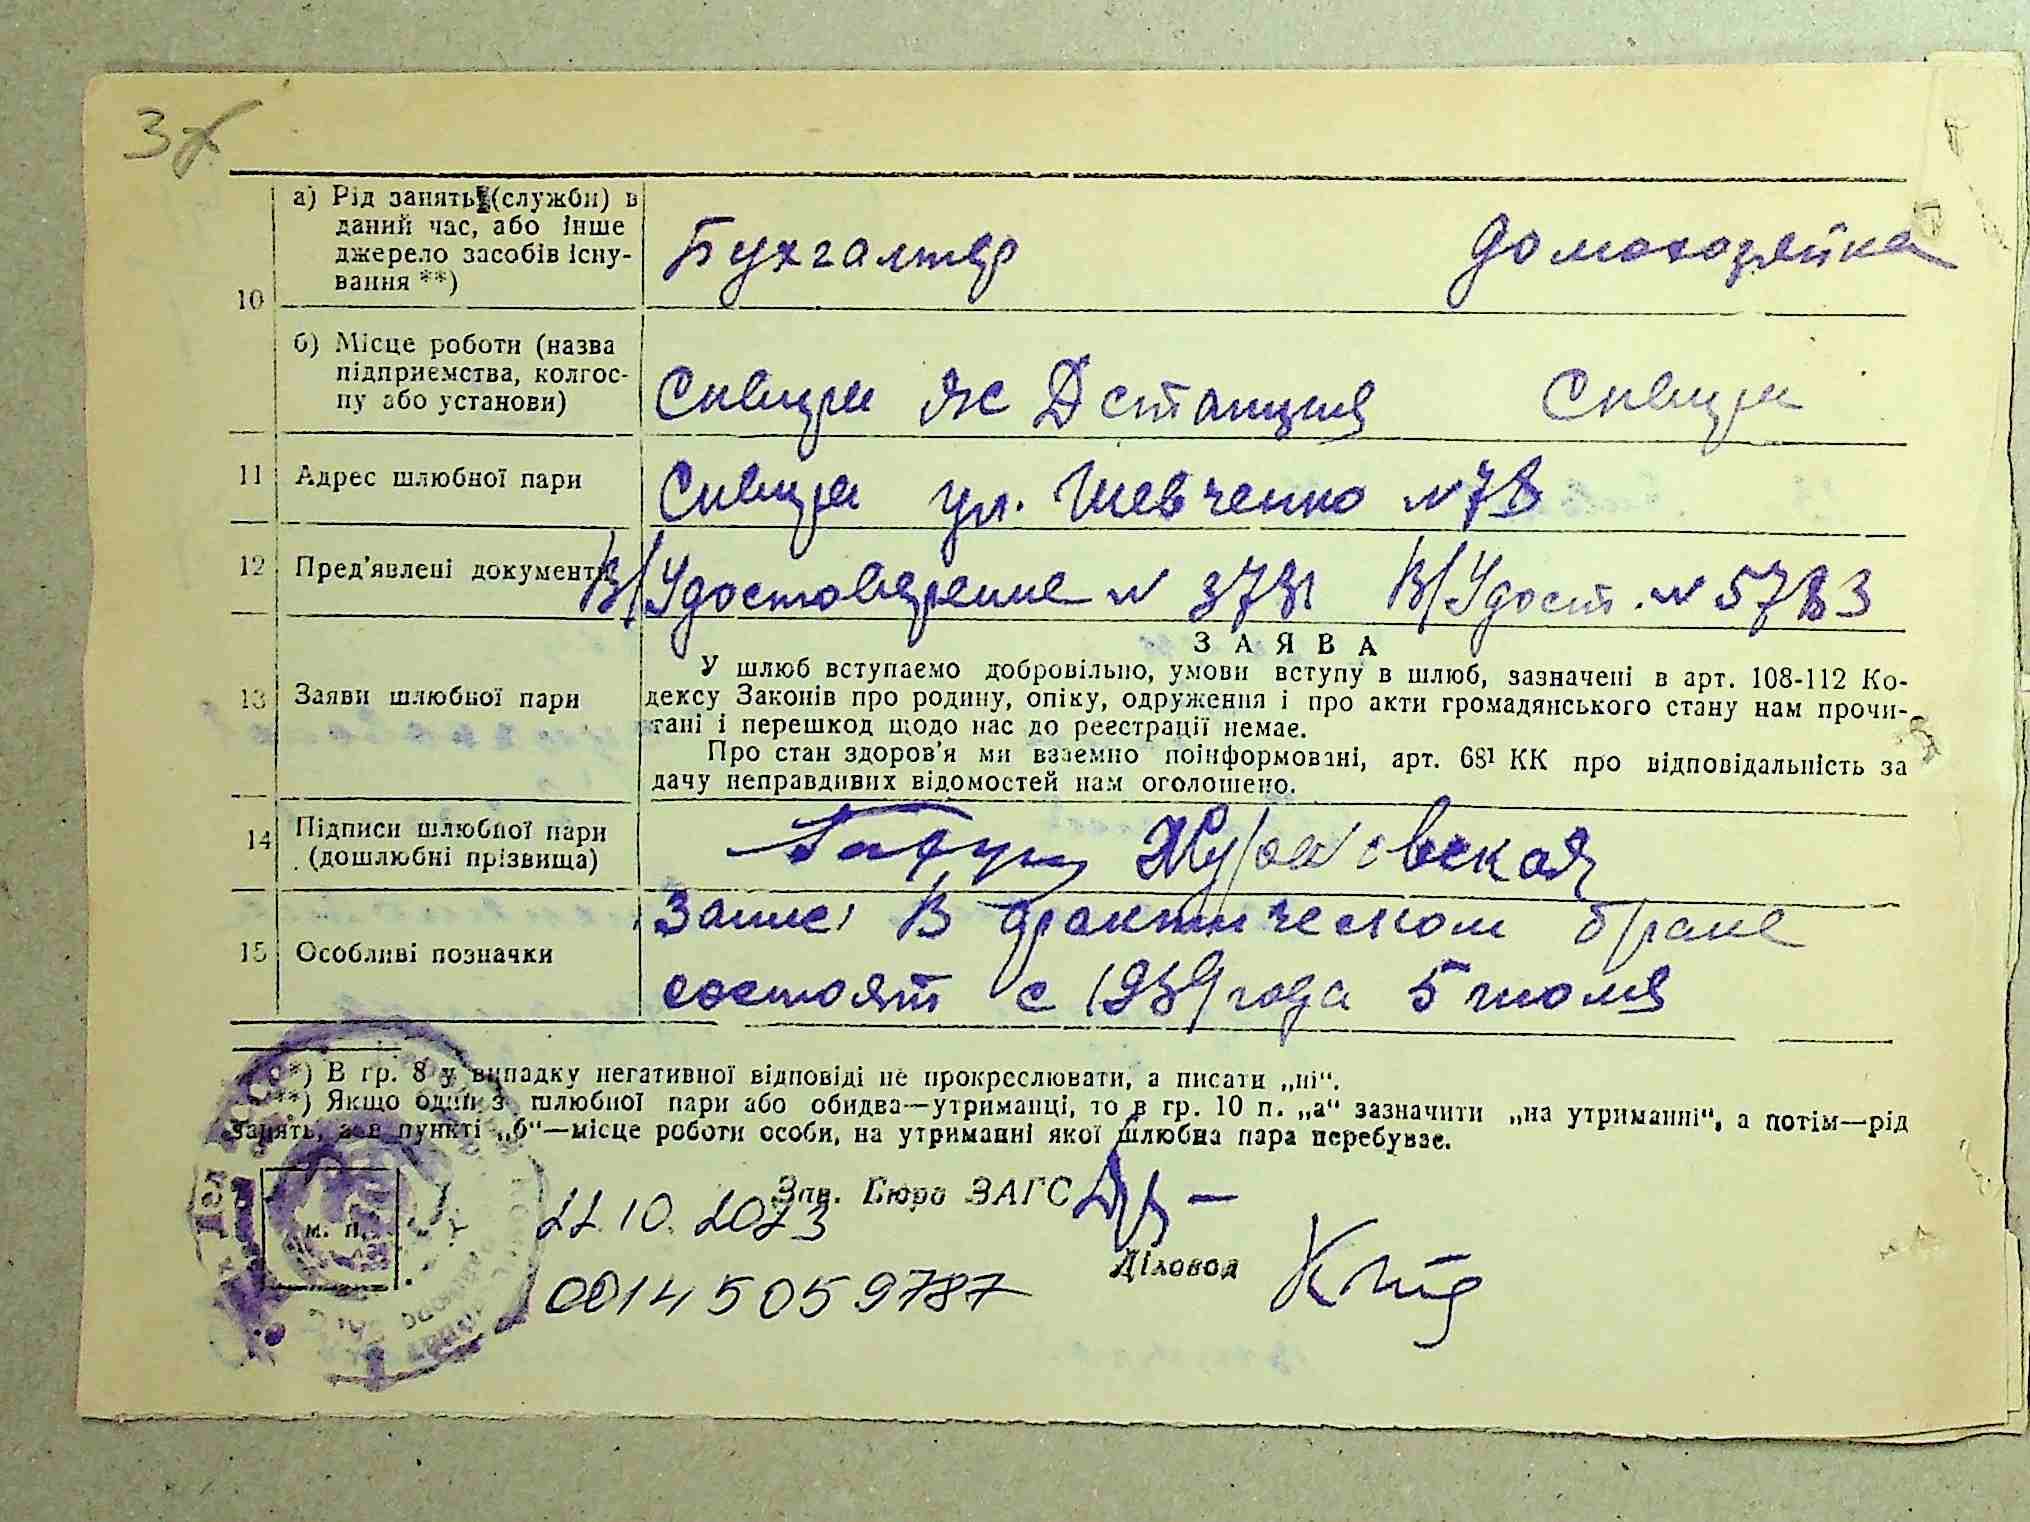 3
а) Рід занять (служби) в
даний час, або інше
джерело засобів існу-
вання **)
10
Бухгалтер домохозяйка
б) Місце роботи (назва
підприємства, колгос-
пу або установи)
Сквира ж Д станция Сквира
11 Адрес шлюбної пари
Сквира ул. Шевченко № 78
12 Пред'явлені документи
В/Удостоверение № 3781 В/Удост. № 5783
13 Заяви шлюбної пари
ЗАЯВА
У шлюб вступаємо добровільно, умови вступу в шлюб, зазначені в арт. 108-112 Ко-
дексу Законів про родину, опіку, одруження і про акти громадянського стану нам прочи-
тані і перешкод щодо нас до реєстрації немає.
Про стан здоров'я ми взаємно поінформовані, арт. 68¹ КК про відповідальність за
дачу неправдивих відомостей нам оголошено.
14 Підписи шлюбної пари
(дошлюбні прізвища)
15 Особливі позначки
В фактическом браке
состоят с 1939 года 5 июля
*) В гр. 8 у випадку негативної відповіді не прокреслювати, а писати „ні“.
**) Якщо один з шлюбної пари або обидва—утриманці, то в гр. 10 п. „а“ зазначити „на утриманні“, а потім—рід
занять, а в пункті „б“—місце роботи особи, на утриманні якої шлюбна пара перебуває.
Зав. Бюро ЗАГС
м. п.
22.10.2023
Діловод
00145059787